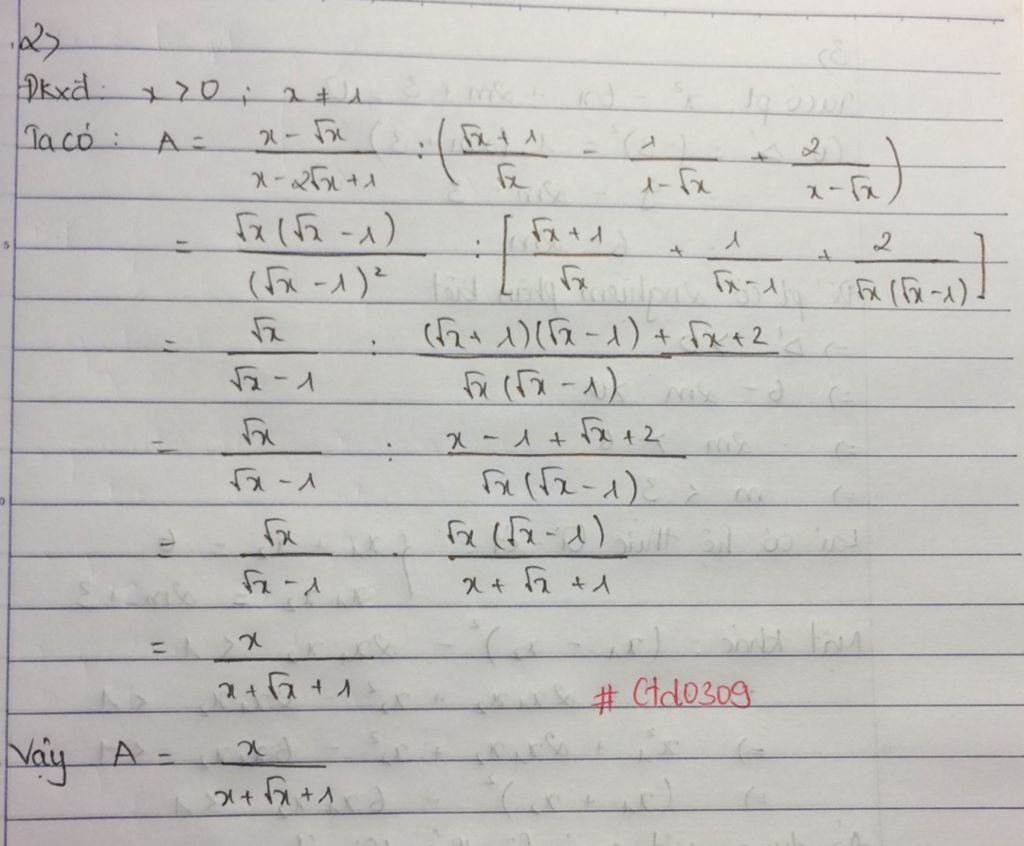 2>
Đkxđ: x > 0 ; x ≠ 1
Ta có : A = (x - √x)/(x - 2√x + 1) : ( (√x + 1)/√x - 1/(1 - √x) + 2/(x - √x) )
= √x(√x - 1)/(√x - 1)² : [ (√x + 1)/√x + 1/(√x - 1) + 2/(√x(√x - 1)) ]
= √x/(√x - 1) : ((√x + 1)(√x - 1) + √x + 2)/(√x(√x - 1))
= √x/(√x - 1) : (x - 1 + √x + 2)/(√x(√x - 1))
= √x/(√x - 1) . √x(√x - 1)/(x + √x + 1)
= x/(x + √x + 1)
# Ctd0309
Vậy A = x/(x + √x + 1)